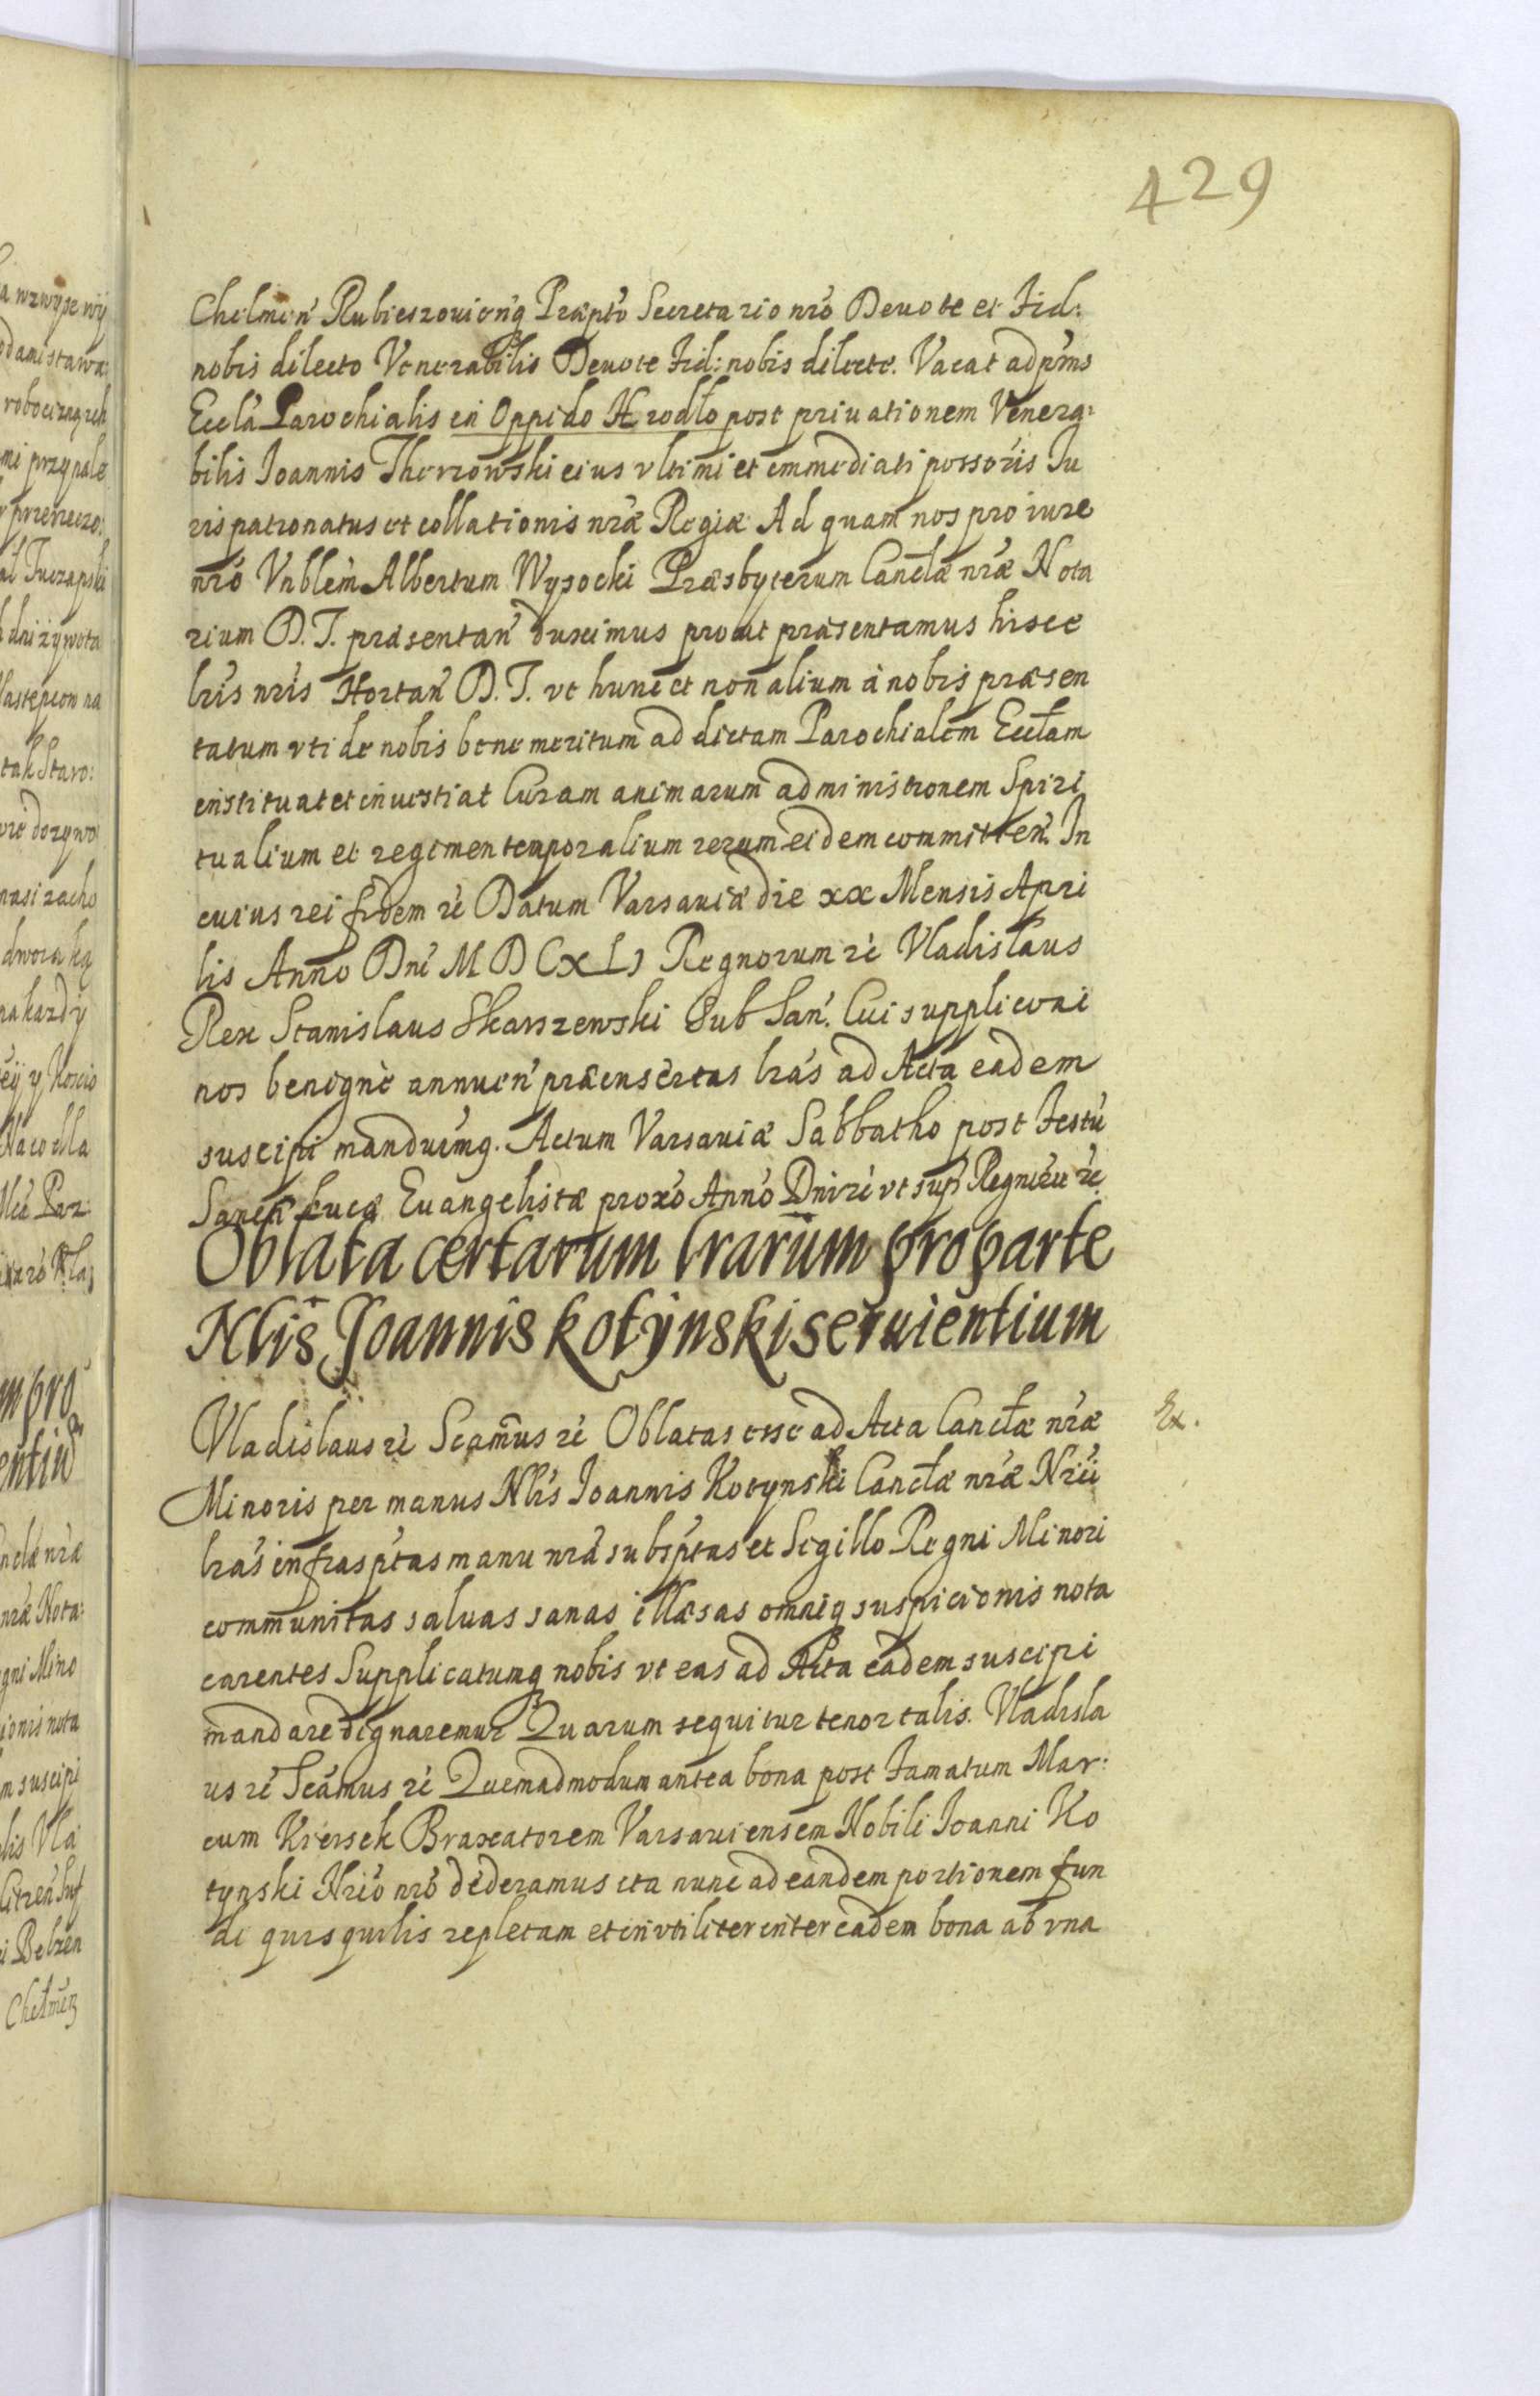 429
Chelmen̄ Rubieszouien̄q Praepto Secretario nro Deuote et Fid:
nobis dilecto Venerabilis Deuote Fid: nobis dilecte. Vacat ad pn̄s
Eccla Parochialis in Oppido Hrodło post priuationem Venera:
bilis Ioannis Therzowski eius vltimi et immediati possoris Iu
ris patronatus et collationis nrae Regiae Ad quam nos pro iure
nro Vnblem Albertum Wysocki Praesbyterum Canclae nrae Nota
rium D. T. praesentan̄ duximus prout praesentamus hisce
lris nris Hortan̄ D. T. vt hunc et non alium à nobis praesen
tatum vti de nobis bene meritum ad dictam Parochialem Ecclam
instituat et inuestiat Curam animarum administronem Spiri
tualium et regimen temporalium rerum eidem committen̄. In
cuius rei fidem rc Datum Varsauiae die xx Mensis Apri
lis Anno Dni M D C X L I Regnorum rc Vladislaus
Rex Stanislaus Skarszewski Sub San̄. Cui suppliconi
nos benignè annuen̄ praeinsertas lras ad Acta eadem
suscipi manduimq. Actum Varsauiae Sabbatho post Festū
Sancti Lucae Euangelistae proxo Anno Dni rc vt sup Regni vu rc
Oblata certarum lrarum pro parte
Nlis Joannis Kotynski seruientium
Vladislaus rc Scamus rc Oblatas esse ad Acta Canclae nrae
Ex.
Minoris per manus Nlis Ioannis Kotynski Canclae nrae Nrii
lras infrasptas manu nra subsptas et Sigillo Regni Minori
communitas saluas sanas illaesas omniq suspicionis nota
carentes Supplicatumq nobis vt eas ad Acta eadem suscipi
mandare dignaremur Quarum sequitur tenor talis. Vladisla
us rc Scamus rc Quemadmodum antea bona post Famatum Mar:
cum Kiersek Braxatorem Varsauiensem Nobili Ioanni Ko
tynski Nrio nro dederamus ita nunc ad eandem portionem fun
di quisquilis repletam et inutiliter inter eadem bona ab vna